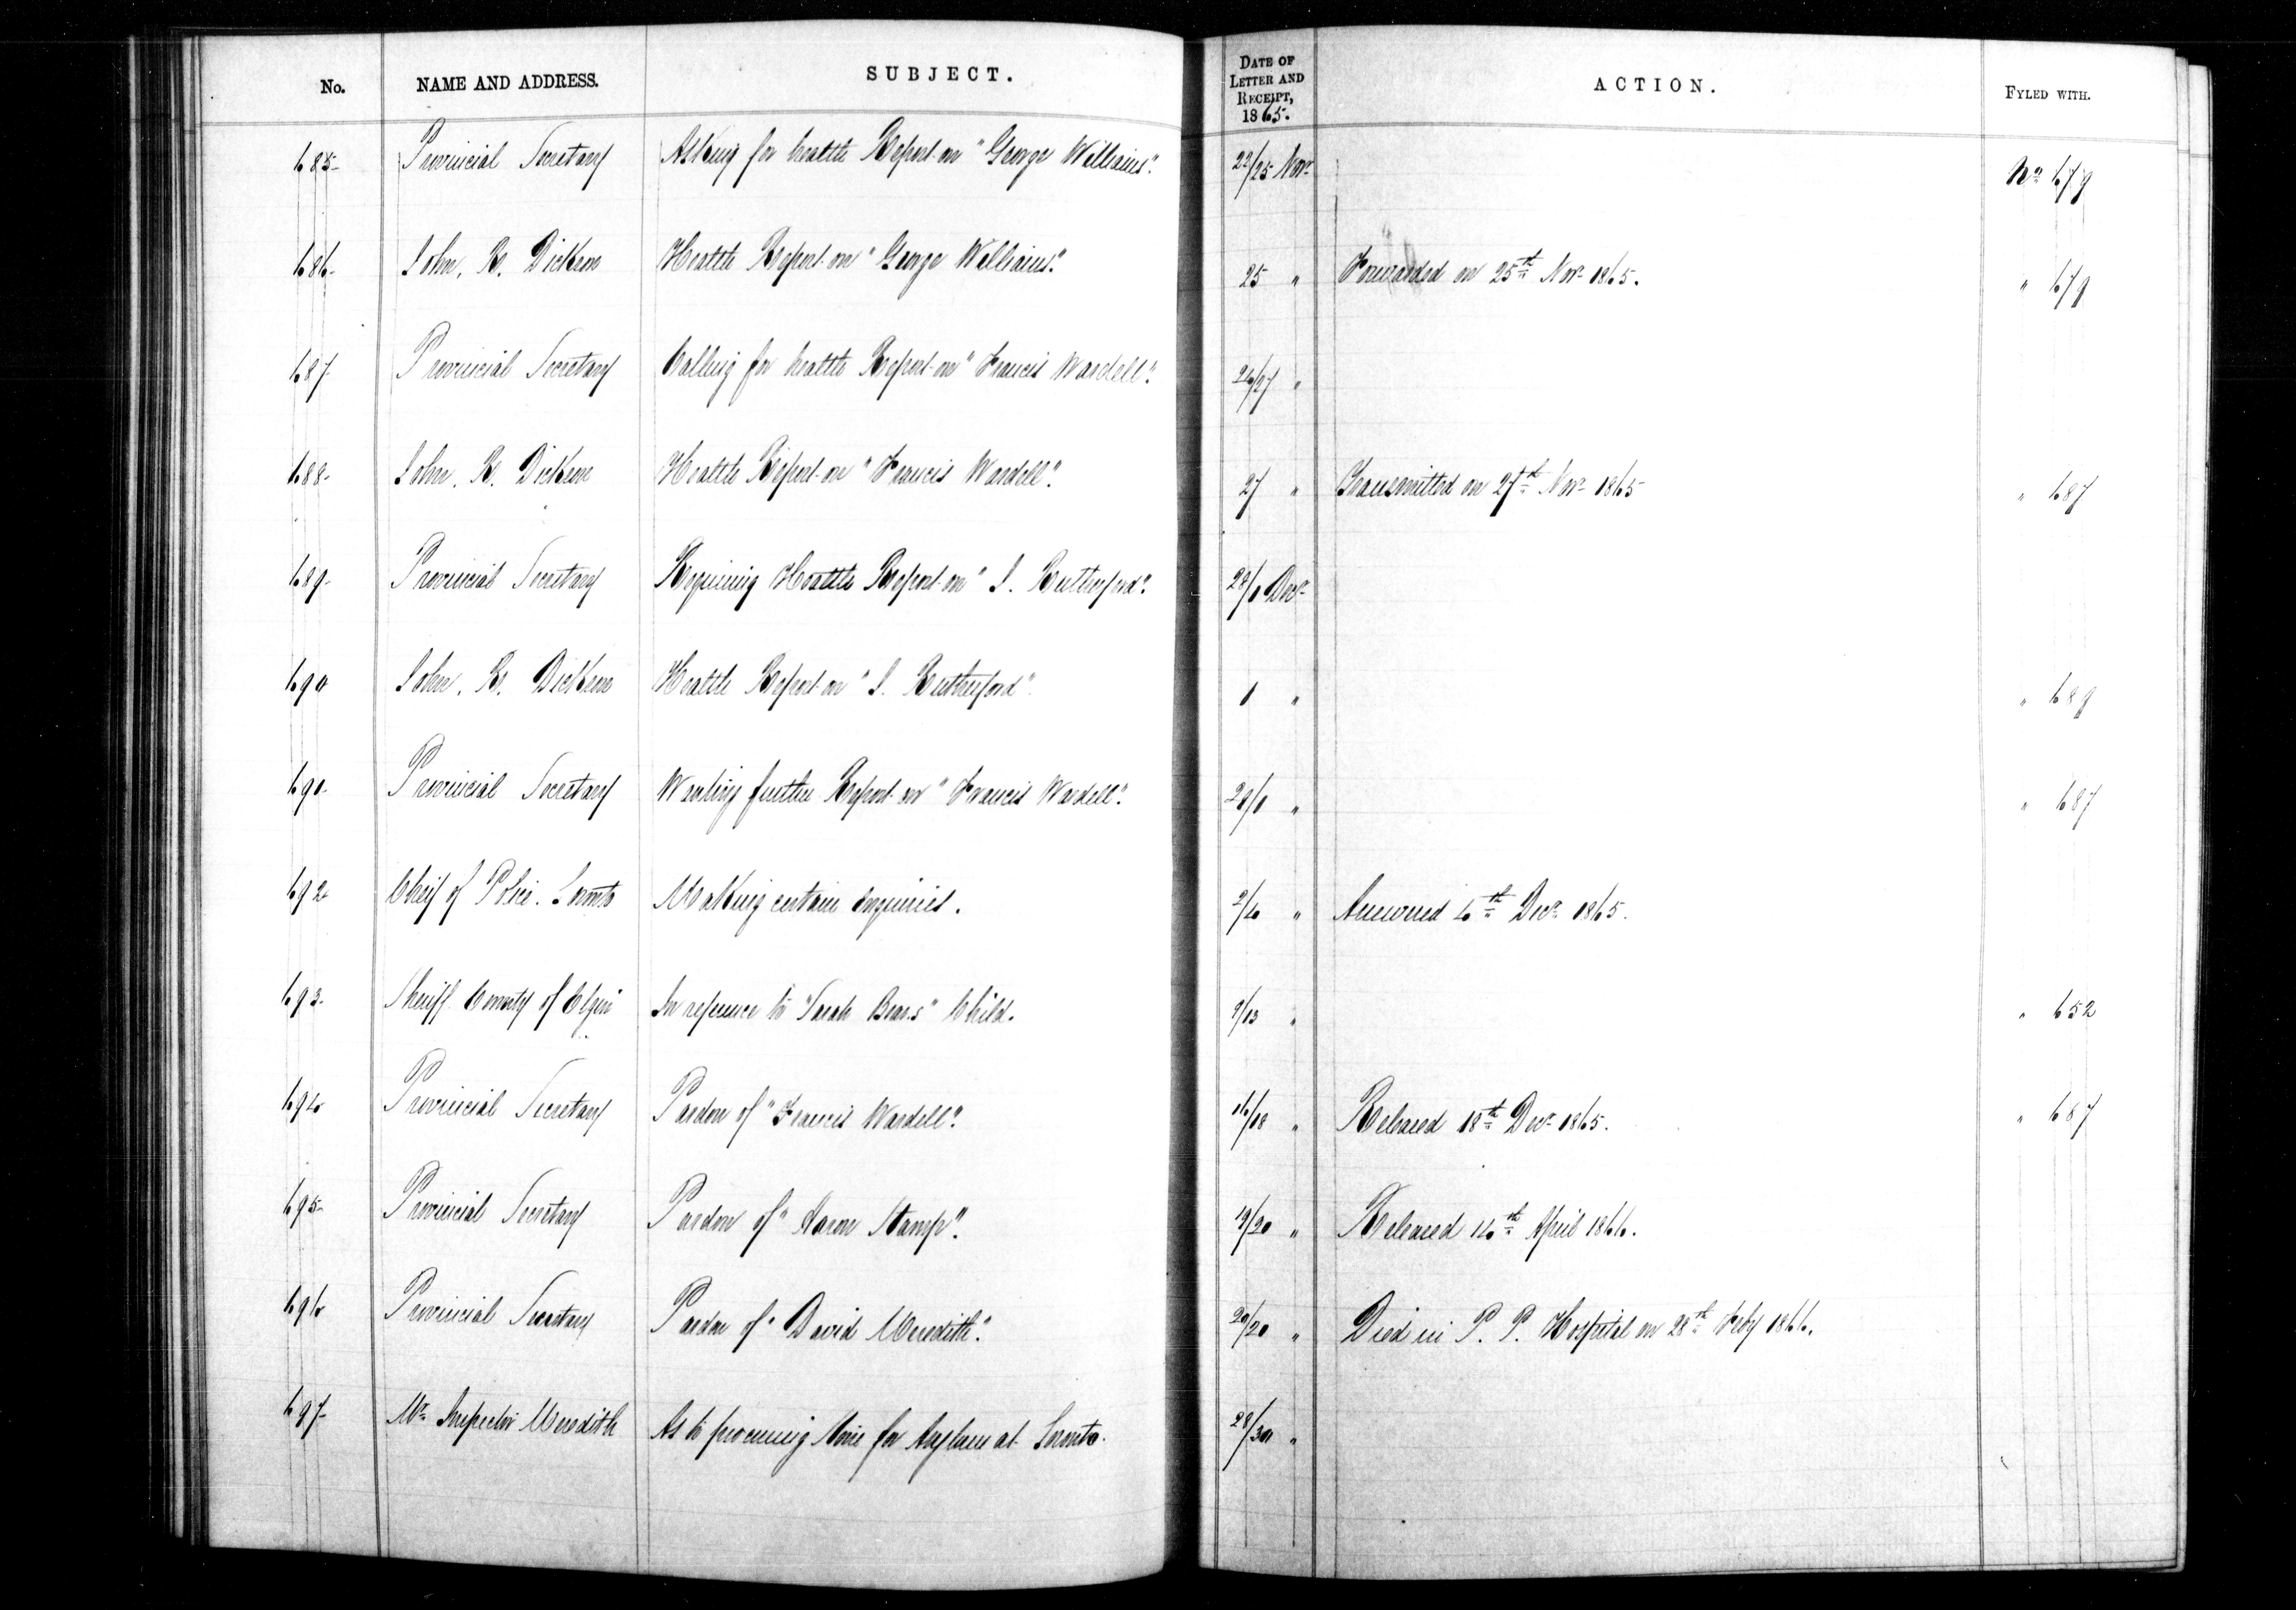 No. NAME AND ADDRESS. SUBJECT. DATE OF LETTER AND RECEIPT, 1865. ACTION. FYLED WITH.
685 Provincial Secretary Asking for health Report on "George Williams". 22/25 Novr No 679
686 John. R. Dickson Health Report on "George Williams". 25 " Forwarded on 25th Novr 1865. " 679
687 Provincial Secretary Calling for health Report on "Francis Wardell". 26/27 "
688 John. R. Dickson Health Report on "Francis Wardell". 27 " Transmitted on 27th Novr 1865 " 687
689 Provincial Secretary Requiring Health Report on "J. Rutherford". 28/1 Decr
690 John. R. Dickson Health Report on "J. Rutherford" 1 " " 689
691 Provincial Secretary Wanting further Report on "Francis Wardell". 28/1 " " 687
692 Cheif of Police. Toronto Making certain enquiries. 2/4 " Answered 4th Decr 1865.
693 Sheriff County of Elgin In reference to "Sarah Bears" Child. 9/13 " " 652
694 Provincial Secretary Pardon of "Francis Wardell". 16/18 " Released 18th Decr 1865. " 687
695 Provincial Secretary Pardon of "Aaron Stamp". 19/20 " Released 14th April 1866.
696 Provincial Secretary Pardon of "David Meredith". 20/20 " Died in P. P. Hospital on 28th Feby 1866.
697 Mr Inspector Meredith As to procuring for Asylum at Toronto. 28/30 "